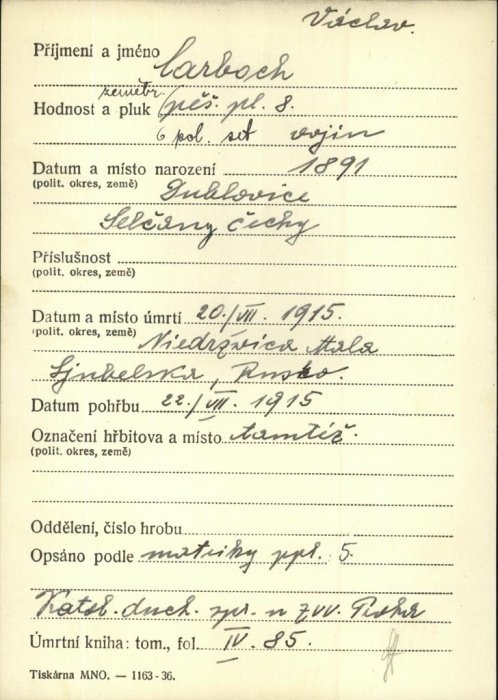 Václav.
Příjmení a jméno Carboch
zeměbr.
Hodnost a pluk pěš. pl. 8.
6 pol. set vojín
Datum a místo narození 1891
(polit. okres, země) Dublovice
Selčany Čechy
Příslušnost
(polit. okres, země)
Datum a místo úmrtí 20./VII. 1915.
(polit. okres, země) Niedrzwica Mala
Ljubelska, Rusko.
Datum pohřbu 22./VII. 1915
Označení hřbitova a místo tamtéž.
(polit. okres, země)
Oddělení, číslo hrobu
Opsáno podle matriky ppl. 5.
Katol. duch. spr. u ZVV. Praha
Úmrtní kniha: tom., fol. IV. 85.
Tiskárna MNO. — 1163-36.